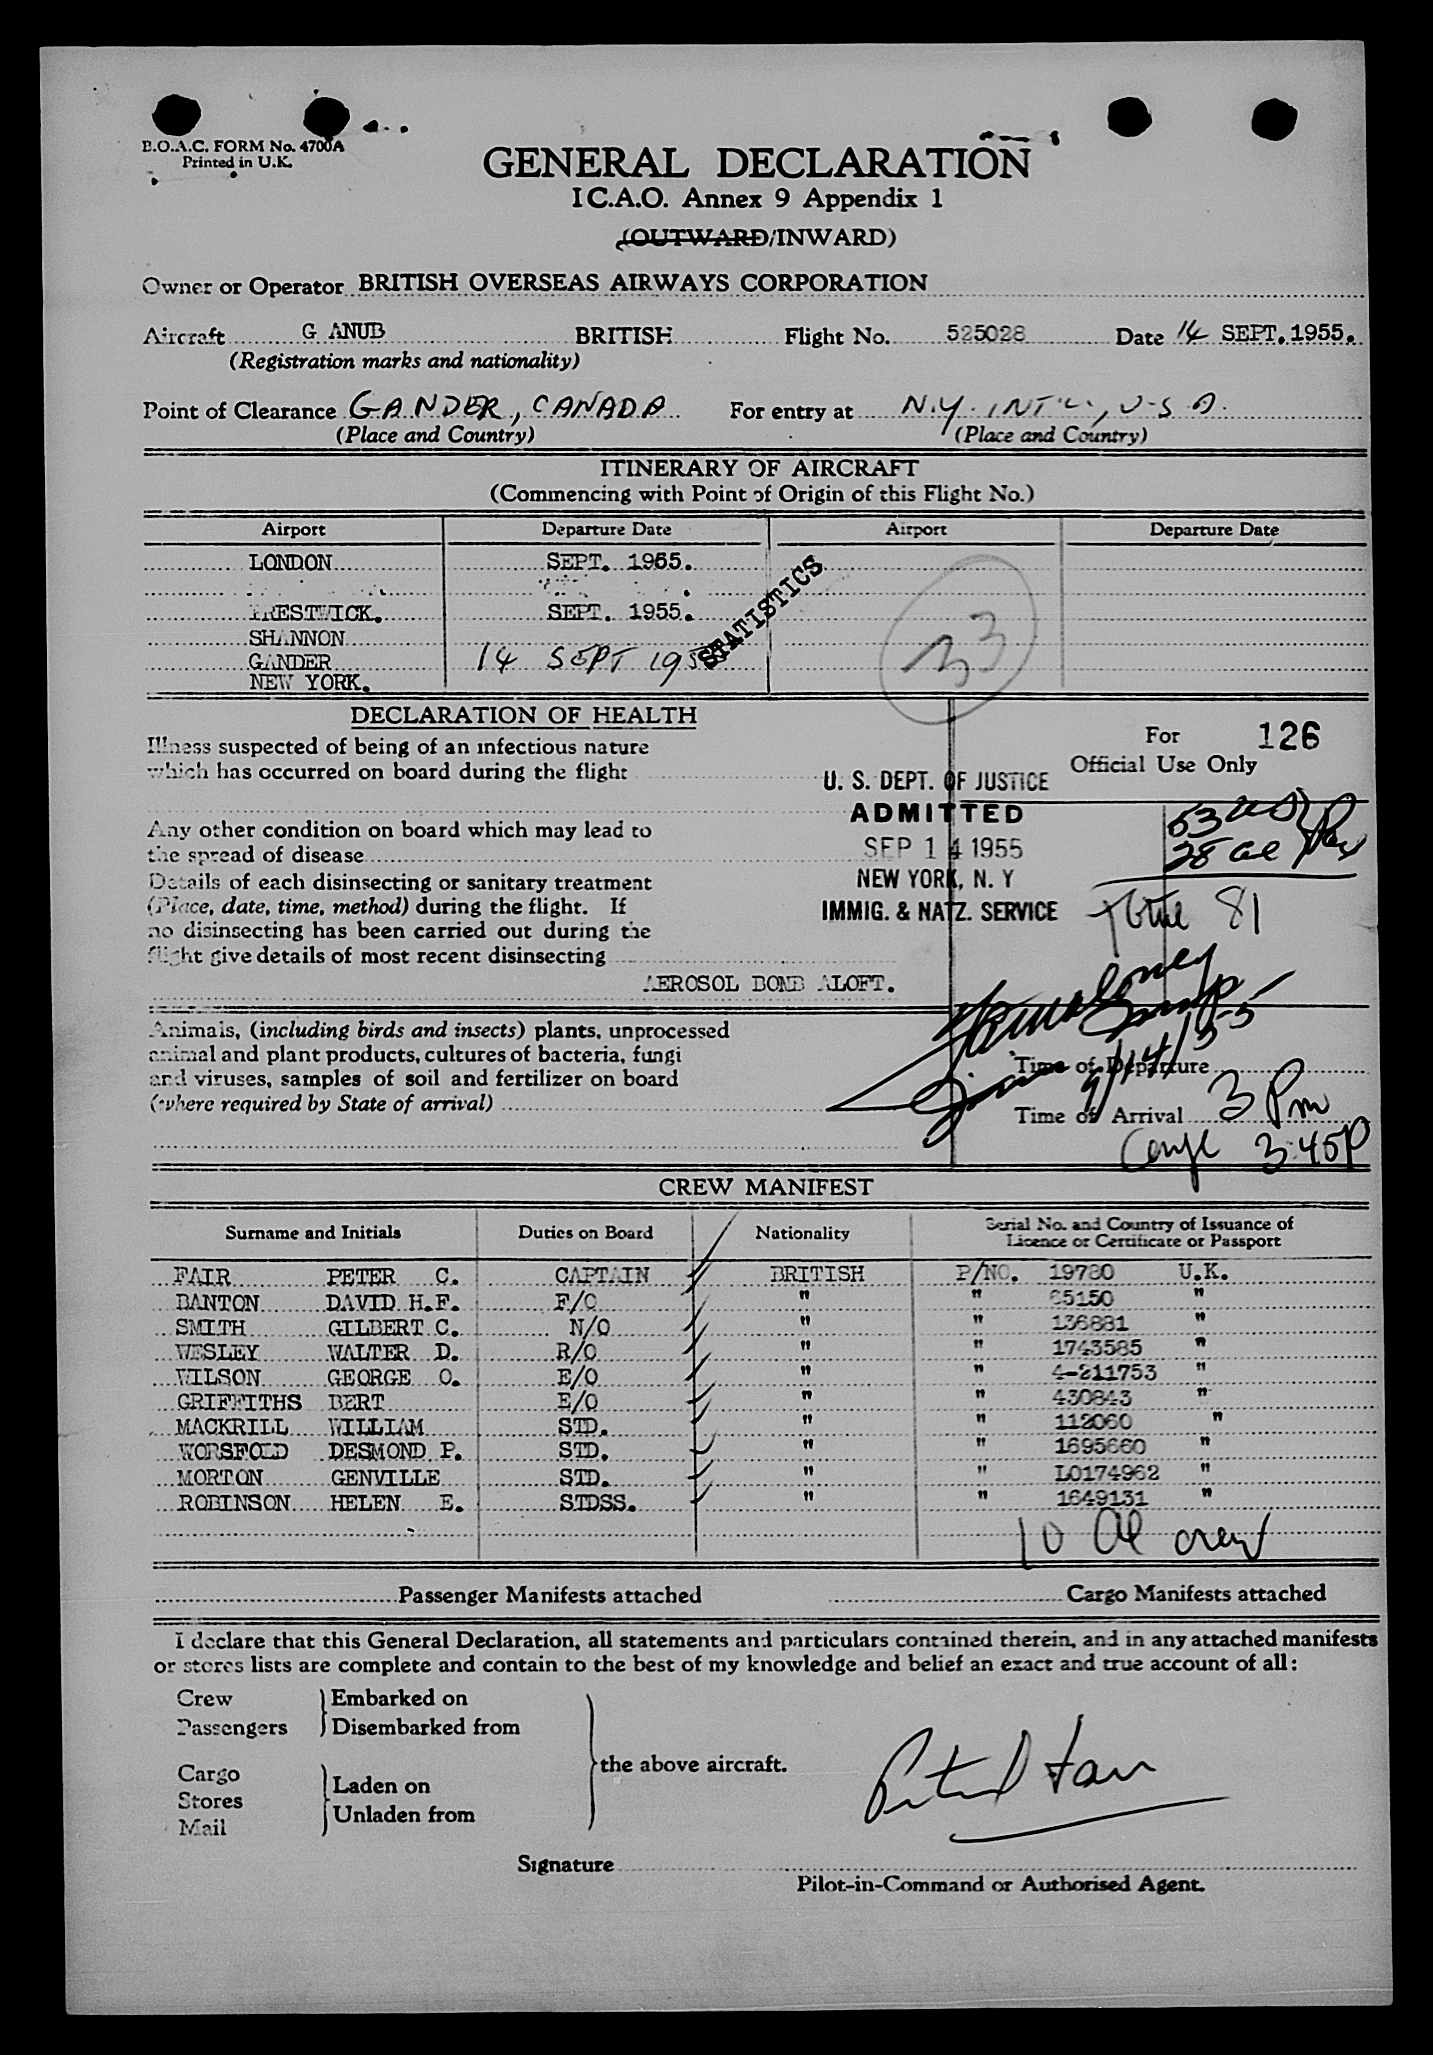 B.O.A.C. FORM No. 4700A
Printed in U.K.
GENERAL DECLARATION
I C.A.O. Annex 9 Appendix 1
(OUTWARD/INWARD)
Owner or Operator BRITISH OVERSEAS AIRWAYS CORPORATION
Aircraft G ANUB BRITISH Flight No. 525028 Date 14 SEPT. 1955.
(Registration marks and nationality)
Point of Clearance GANDER, CANADA For entry at N.Y. INT'L., U.S.A.
(Place and Country) (Place and Country)
ITINERARY OF AIRCRAFT
(Commencing with Point of Origin of this Flight No.)
Airport Departure Date Airport Departure Date
LONDON SEPT. 1955.
PRESTWICK. SEPT. 1955.
STATISTICS
33
SHANNON
GANDER 14 SEPT 195
NEW YORK.
DECLARATION OF HEALTH
Illness suspected of being of an infectious nature
which has occurred on board during the flight
For 126
Official Use Only
U. S. DEPT. OF JUSTICE
ADMITTED
SEP 14 1955
NEW YORK, N. Y
IMMIG. & NATZ. SERVICE
53 US
28 al Pax
Total 81
Any other condition on board which may lead to
the spread of disease
Details of each disinsecting or sanitary treatment
(Place, date, time, method) during the flight. If
no disinsecting has been carried out during the
flight give details of most recent disinsecting
AEROSOL BOMB ALOFT.
Animals, (including birds and insects) plants, unprocessed
animal and plant products, cultures of bacteria, fungi
and viruses, samples of soil and fertilizer on board
(where required by State of arrival)
9/14/55
Time of Departure
Time of Arrival 3 Pm
3:45P
CREW MANIFEST
Surname and Initials Duties on Board Nationality Serial No. and Country of Issuance of
Licence or Certificate or Passport
FAIR PETER C. CAPTAIN BRITISH P/NO. 19780 U.K.
BANTON DAVID H.F. F/O " " 65150 "
SMITH GILBERT C. N/O " " 136881 "
WESLEY WALTER D. R/O " " 1743585 "
WILSON GEORGE O. E/O " " 4-211753 "
GRIFFITHS BERT E/O " " 430843 "
MACKRILL WILLIAM STD. " " 112060 "
WORSFOLD DESMOND P. STD. " " 1695660 "
MORTON GENVILLE STD. " " L0174962 "
ROBINSON HELEN E. STDSS. " " 1649131 "
10 al crew
Passenger Manifests attached Cargo Manifests attached
I declare that this General Declaration, all statements and particulars contained therein, and in any attached manifests
or stores lists are complete and contain to the best of my knowledge and belief an exact and true account of all:
Crew Embarked on
Passengers Disembarked from
the above aircraft.
Cargo Laden on
Stores
Mail Unladen from
Signature
Pilot-in-Command or Authorised Agent.